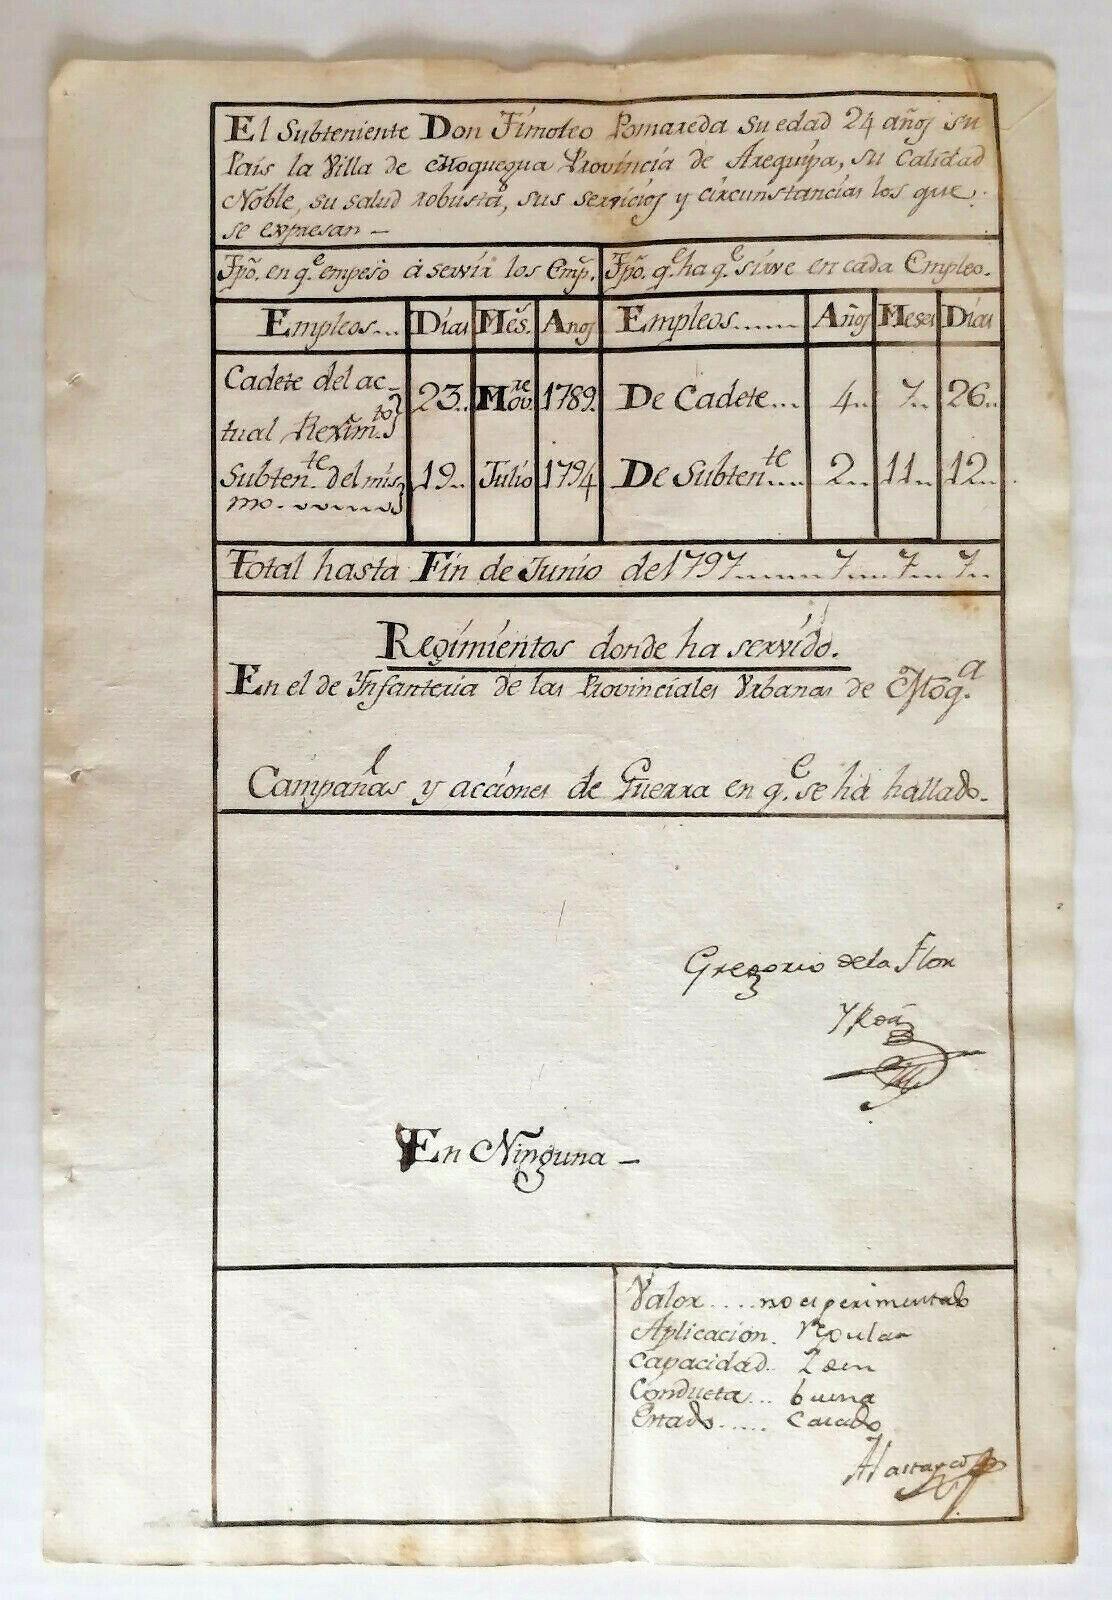 El Subteniente Don Timoteo Pomareda su edad 24 años su
País la Villa de Moquegua Provincia de Arequipa, su calidad
Noble, su salud robusta, sus servicios y circunstancias los que
se expresan —
Tpo. en q.e empeso á servir los Emp.s
Tpo. q.e ha q.e sirve en cada Empleo.
Empleos... Dias Mes.s Anos Empleos...... Años Meses Dias
Cadete del ac-
tual Reximto 23.. Nov.re 1789. De Cadete... 4.. 7.. 26..
Subten.te del mis-
mo. 19.. Julio 1794 De Subten.te... 2.. 11.. 12..
Total hasta Fin de Junio de 1797........ 7... 7... 7..
Regimientos donde ha servido.
En el de Ynfanteria de las Provinciales Urbanas de Moq.a
Campañas y acciones de Guerra en q.e se ha hallado.
Gregorio de la Flor
En Ninguna —
Valor.... no esperimentado
Aplicacion. regular
Capacidad.. Ydem
Conducta... buena
Estado..... Casado